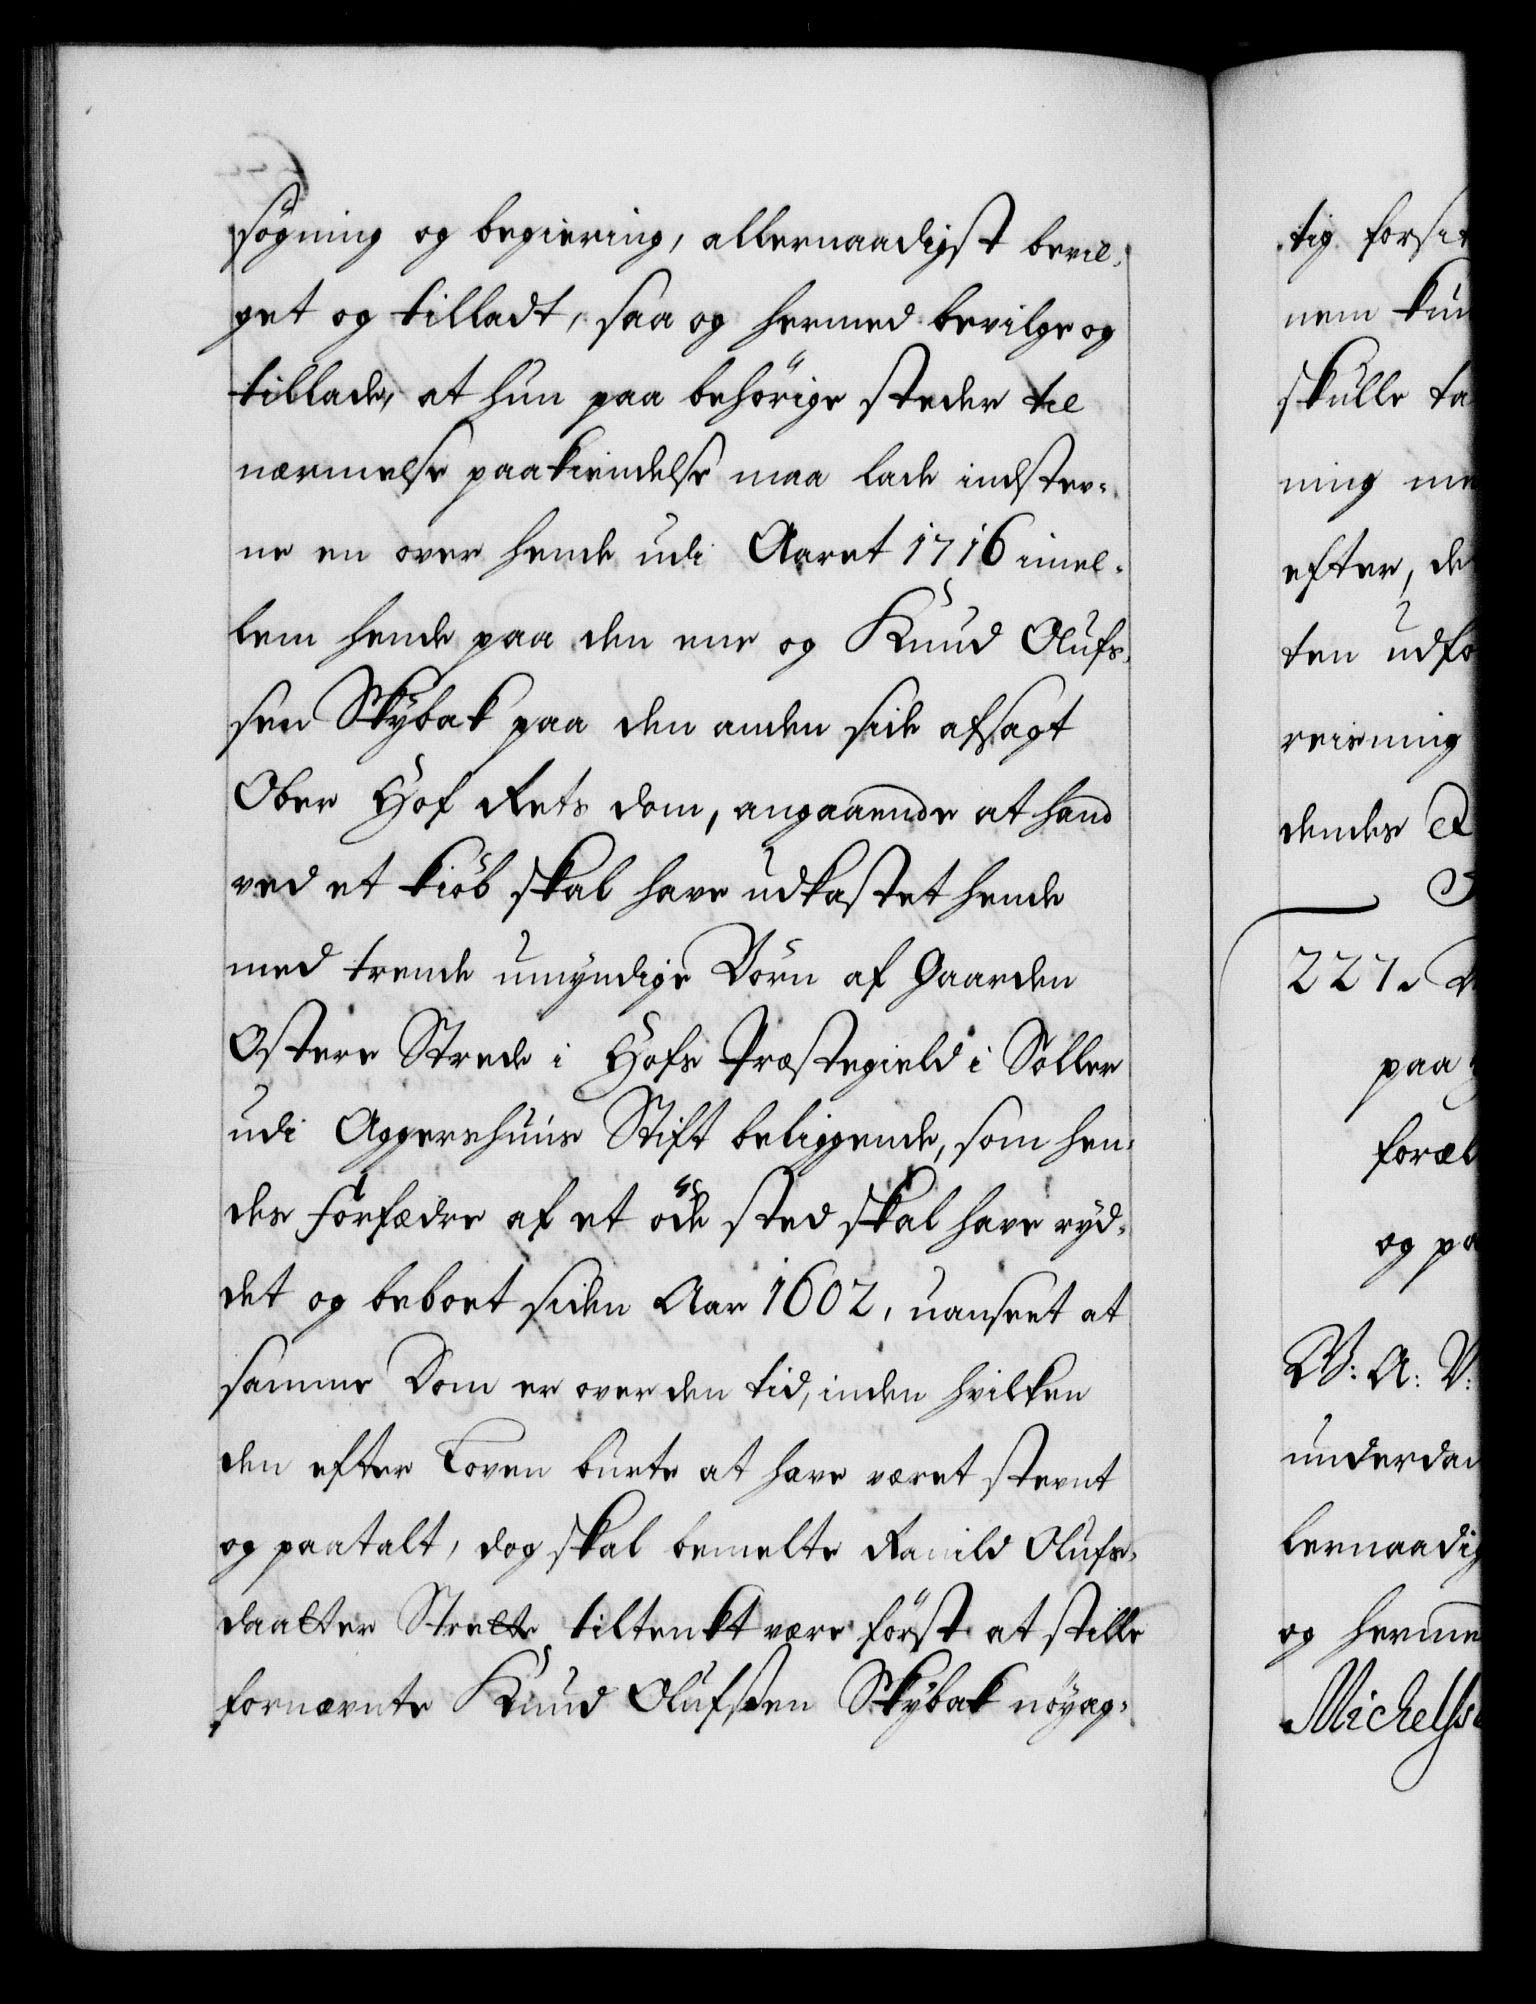 søgning og begiering, allernaadigst bevil-
get og tilladt, saa og hermed bevilge og
tillade, at hun paa behörige steder til
nærmelse paakiendelse maa lade indstev-
ne en over hende udi Aaret 1716 imel-
lem hende paa den ene og Knud Olufs-
sen Skybak paa den anden side afsagt
Ober Hof Rets dom, angaaende at hand
ved et kiöb skal have udkastet hende
med trende umyndige Börn af Gaarden
Ostere Strede i Hofs Præstegield i Soller
udi Aggershuus Stift beliggende, som hen-
des Forfædre af et öde sted skal have ryd-
det og beboet siden Aar 1602, uanseet at
samme Dom er over den tid, inden hvilken
den efter Loven burte at have været stevnt
og paatalt, dog skal bemelte Ranild Olufs-
daatter Strette tiltenkt være först at stille
fornævnte Knud Olufssen Skybak nöyag-
tig forsi
nem
skulle ta
ning me
efter, de
ten udfo
reisning
dendes
227.
paa
foræl
og pa
W: A: V:
underdan
lernaadig
og herme
Michelss